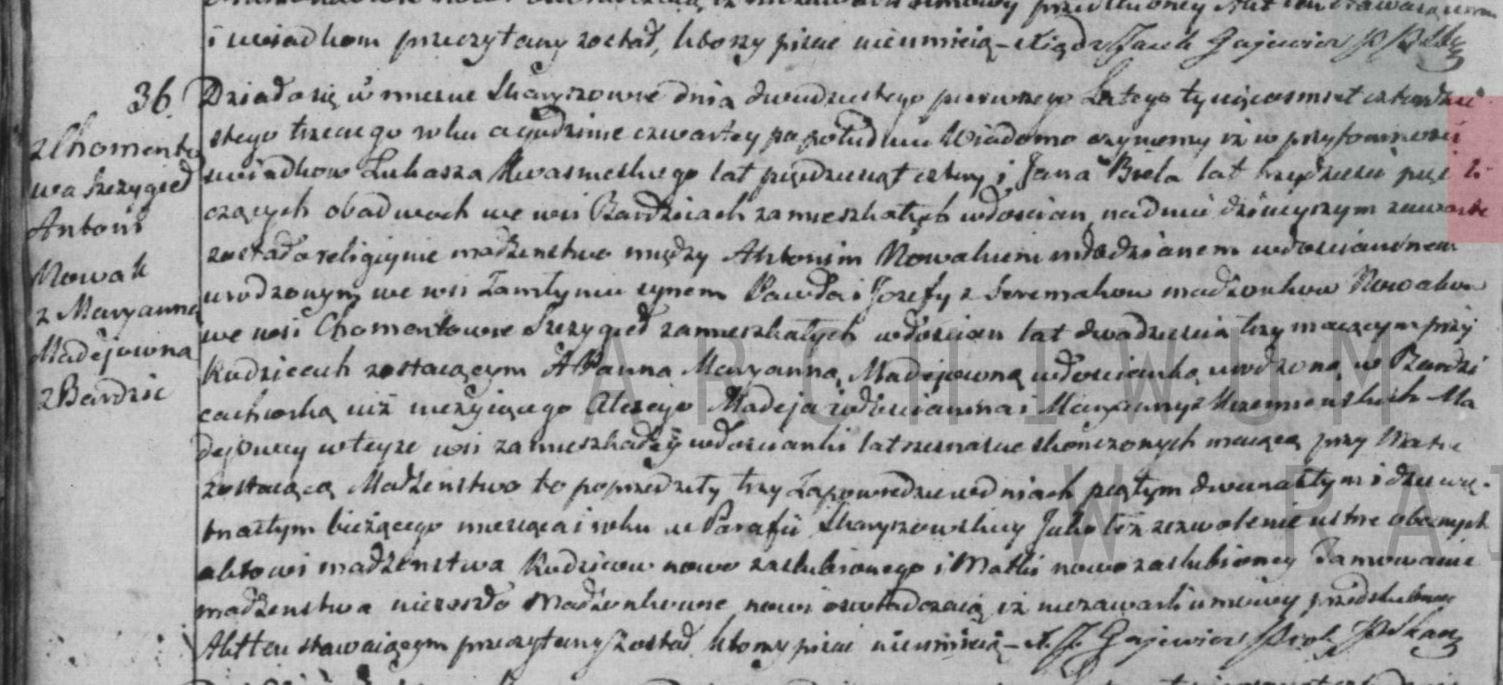 i świadkom przeczytany został, którzy pisać nieumieią – Xiądz Jacek Gajewicz
36.
z Chomento
wa Szczygieł
Antoni
Nowak
z Maryanną
Madejowną
z Bardzic
Działo się w mieście Skaryszowie dnia dwudziestego pierwszego Lutego tysiąc osmset czterdzie
stego trzeciego roku o godzinie czwartey po południu Wiadomo czyniemy iż w przytomności
świadkow Łukasza Kwasniewskiego lat pięćdziesiąt cztery i Jana Biela lat trzydzieści pięć li
czących obadwoch we wsi Bardzicach zamieszkałych włościan, na dniu dzisieyszym zawarte
zostało religijnie małżeństwo między Antonim Nowakiem młodzianem włościaninem
urodzonym we wsi synem Pawła i Jozefy z małżonkow Nowakow
we wsi Chomentowie Szczygieł zamieszkałych włościan lat dwadzieścia trzy maiącym przy
Rodzicach zostaiącym A Panną Maryanną Madejowną włościanką urodzoną w Bardzi
cach corką już nieżyiącego Madeja włościanina i Maryanny z Ma
dejowey w teyże wsi zamieszkałey włościanki lat szesnaście skończonych maiącą przy Matce
zostaiącą Małżeństwo to poprzedziły trzy Zapowiedzie w dniach piątym dwunastym i dziewię-
tnastym bieżącego miesiąca i roku w Parafii Skaryszowskiey Jako też zezwolenie ustne obecnych
aktowi małżeństwa Rodzicow nowo zaślubionego i Matki nowo zaślubioney Tamowanie
małżeństwa niezaszło Małżonkowie nowi oświadczaią iż niezawarli umowy przedślubney
Akt ten stawaiącym przeczytany został, ktorzy pisać nieumieią – X. J. Gajewicz
ARCHIWUM
W RA